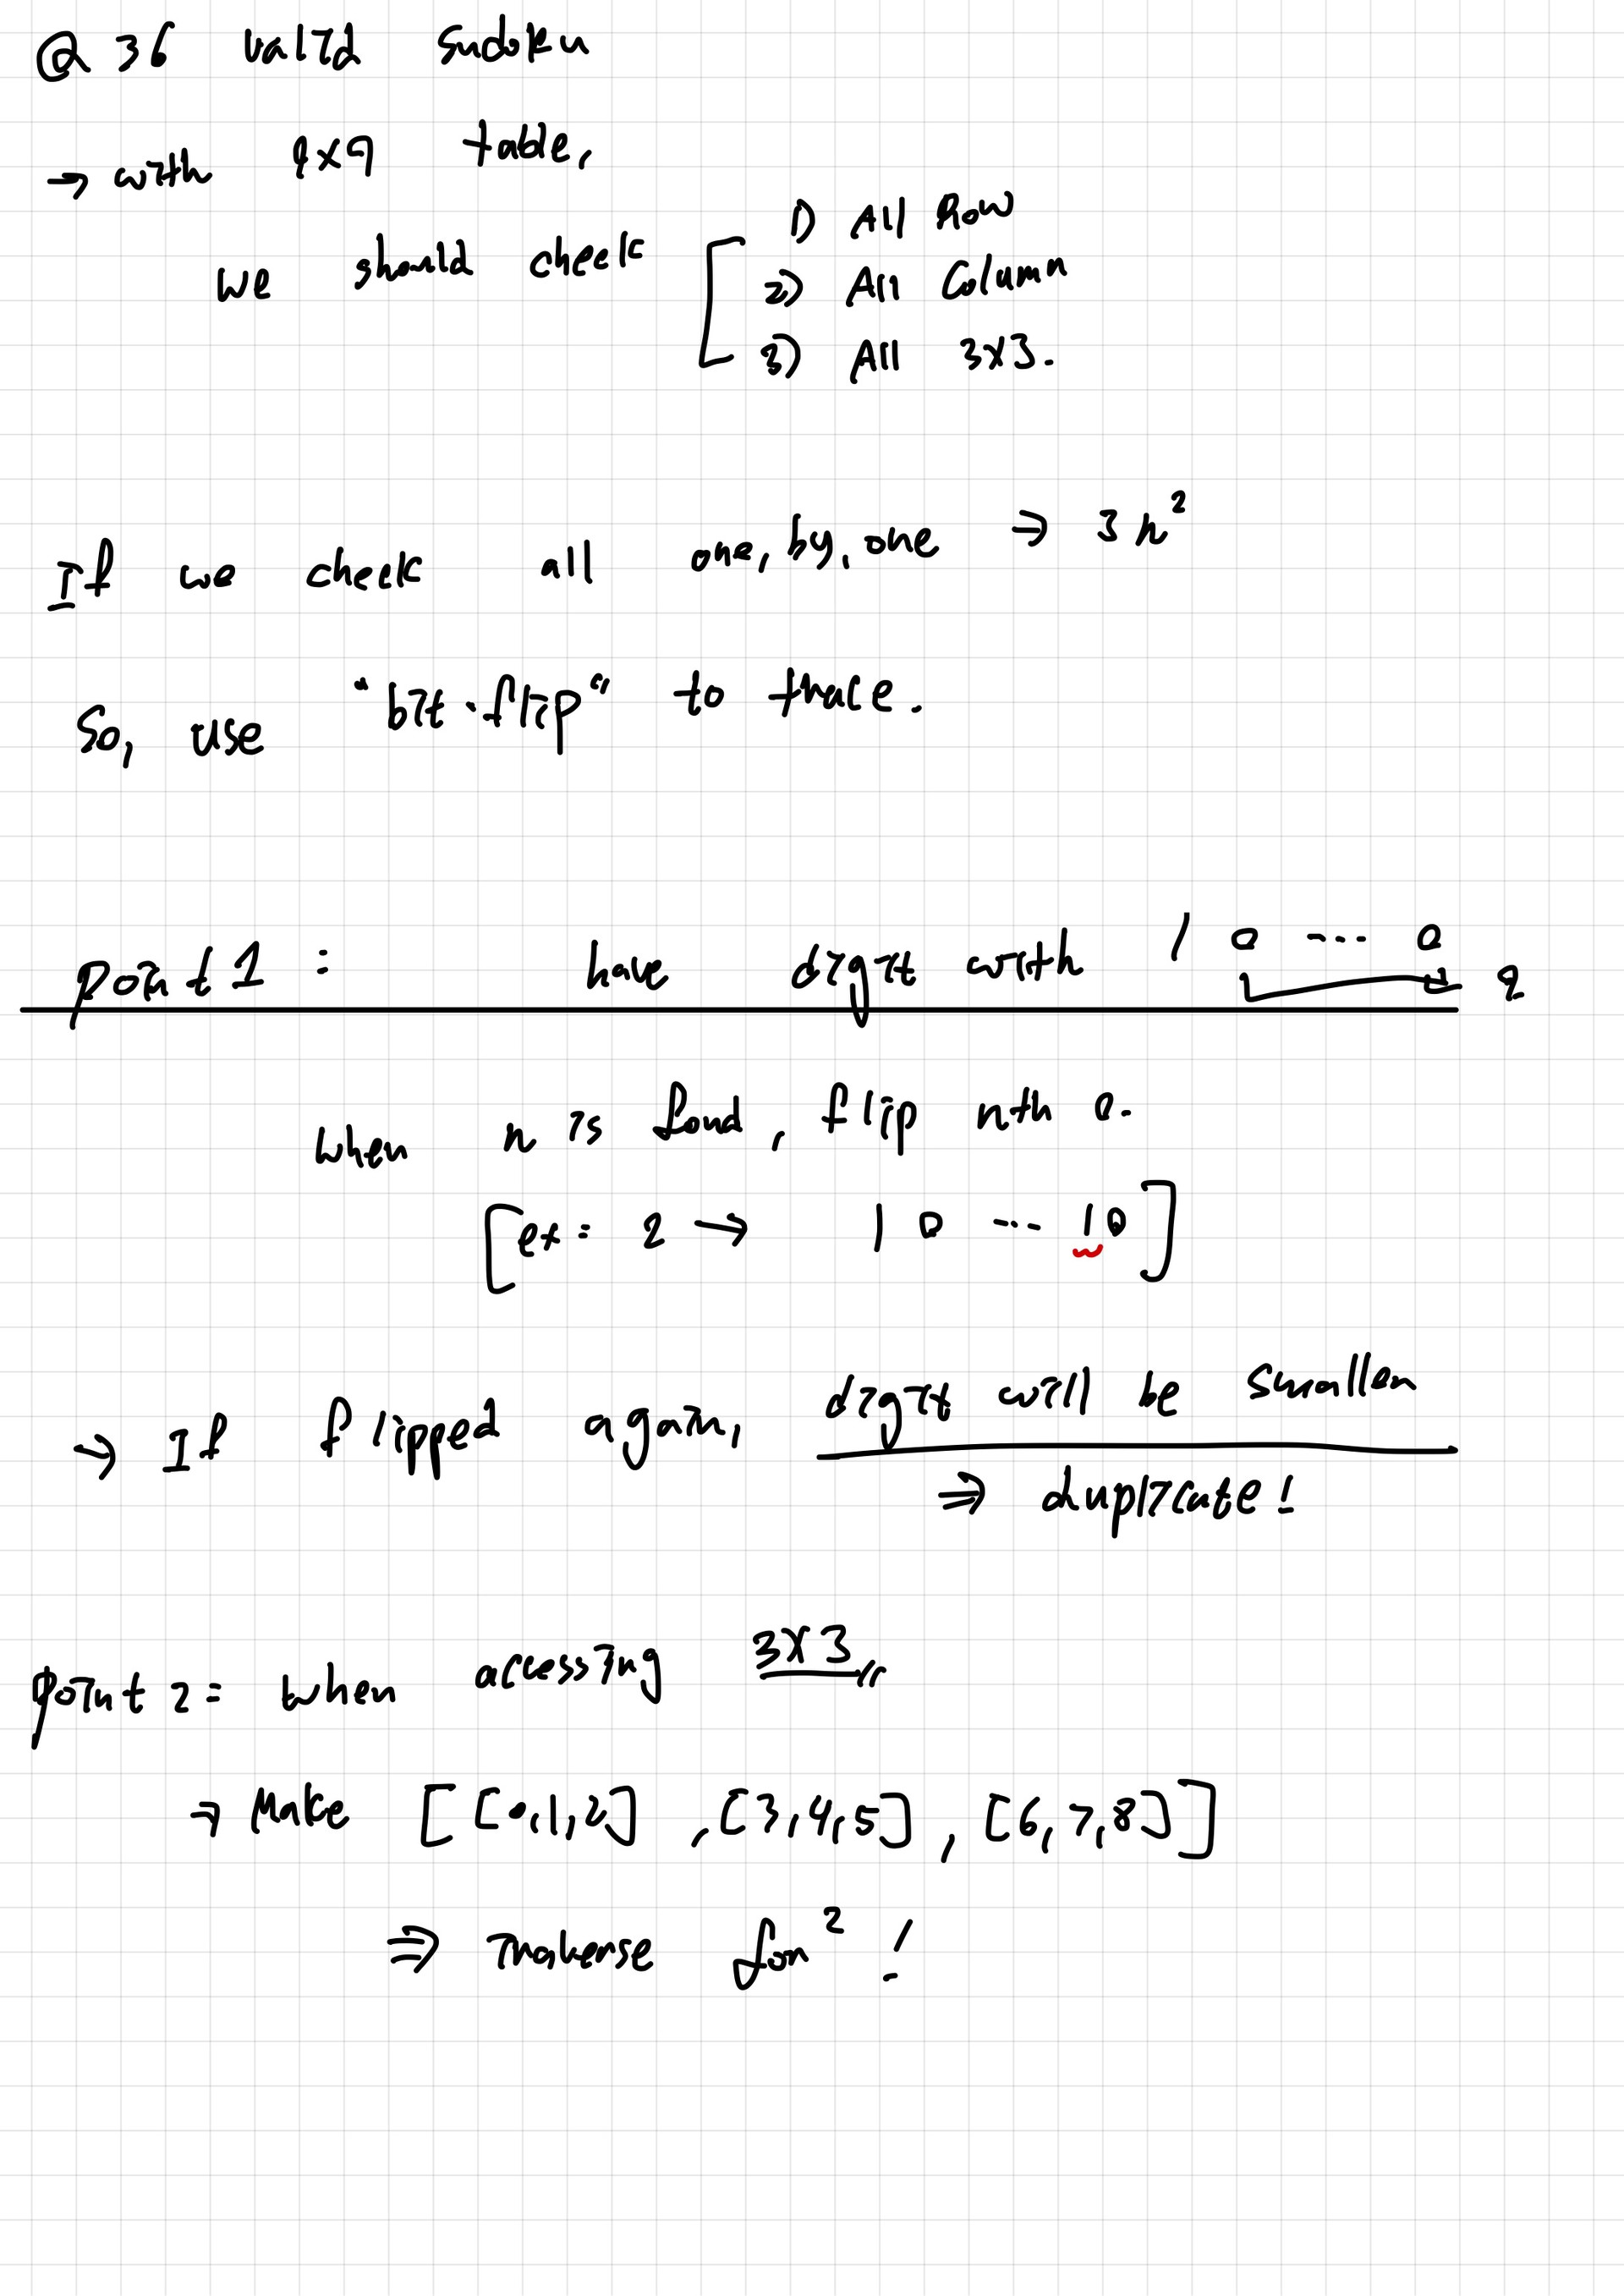 @ 36 valid sudoku
→ with 9x9 table,
we should check
1) All Row
2) All Column
3) All 3x3.
If we check all one, by, one → 3n²
So, use "bit-flip" to trace.
point 1 : have digit with 1 0 ... 0 9
when n is fond, flip nth 0.
[ex: 2 → 1 0 ... 1 0]
→ If flipped again, digit will be smaller
⇒ duplicate!
point 2 : when accessing 3X3,,
→ Make [[0,1,2] , [3,4,5] , [6,7,8]]
⇒ for² !